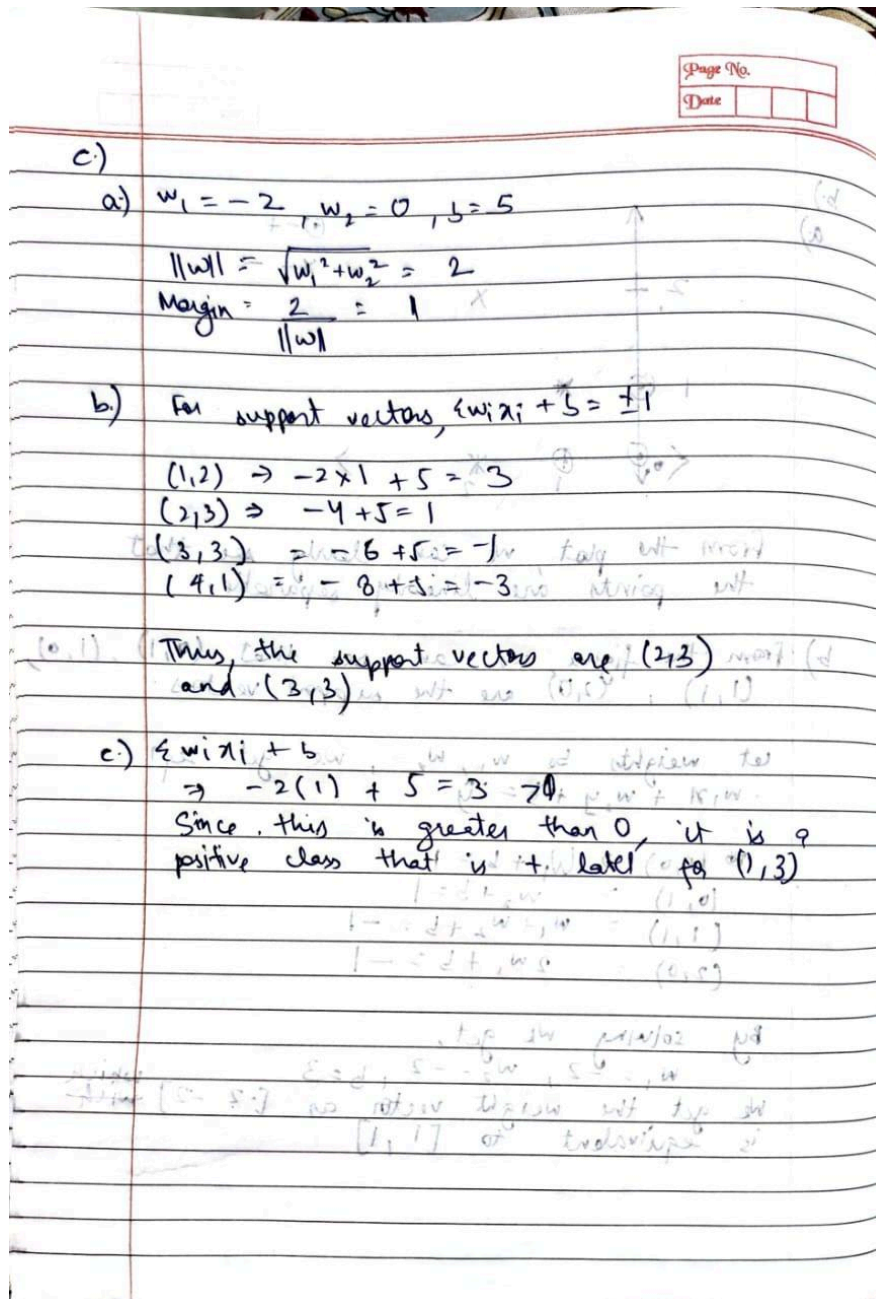 Page No.
Date
c.)
a.) w₁ = -2 , w₂ = 0 , b = 5
||w|| = √w₁²+w₂² = 2
Margin = 2/||w|| = 1
b.) For support vectors, Σwixi + b = ±1
(1,2) → -2×1 + 5 = 3
(2,3) ⇒ -4+5 = 1
(3,3) = -6 +5 = -1
(4,1) = -8+5 = -3
Thus, the support vectors are (2,3)
and (3,3)
c.) Σwixi + b
⇒ -2(1) + 5 = 3 >0
Since this is greater than 0, it is a
positive class that is +. label for (1,3)